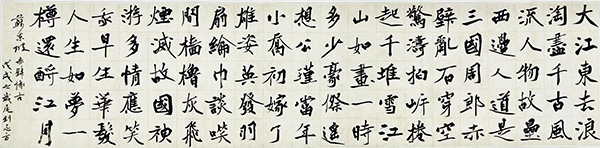 大江東去浪
淘盡千古風
流人物故壘
西邊人道是
三國周郎赤
壁亂石穿空
驚濤拍岸捲
起千堆雪江
山如畫一時
多少豪傑遙
想公瑾當年
小喬初嫁了
雄姿英發羽
扇綸巾談笑
間檣櫓灰飛
煙滅故國神
游多情應笑
我早生華髮
人生如夢一
樽還酹江月
蘇東坡赤壁懷古
戊戌歲尾